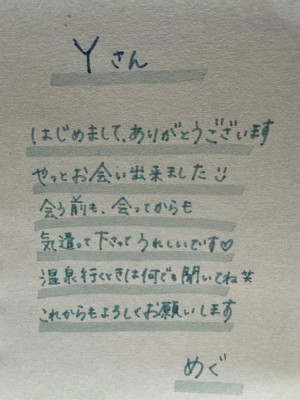 Yさん
はじめまして、ありがとうございます
やっとお会い出来ました
会う前も、会ってからも
気遣って下さってうれしいです♡
温泉行くときは何でも聞いてね笑
これからもよろしくお願いします
めぐ